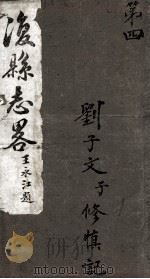 第四
劉子文子修慎
復縣志畧
王永江題